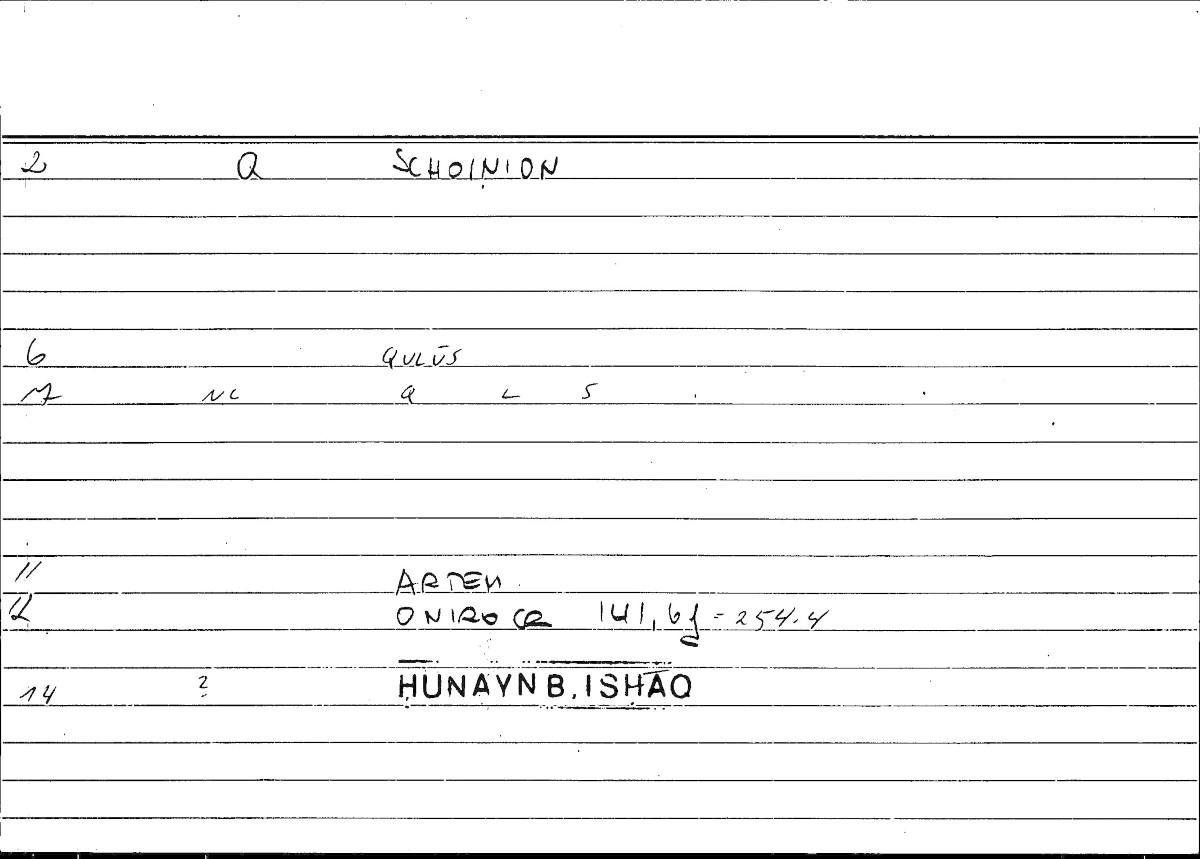 2 Q SCHOINION
6 QULŪS
7 NC Q L S
11 ARTEM
12 ONIROCR 141,6f = 254.4
14 ? ḤUNAYN B. ISḤĀQ